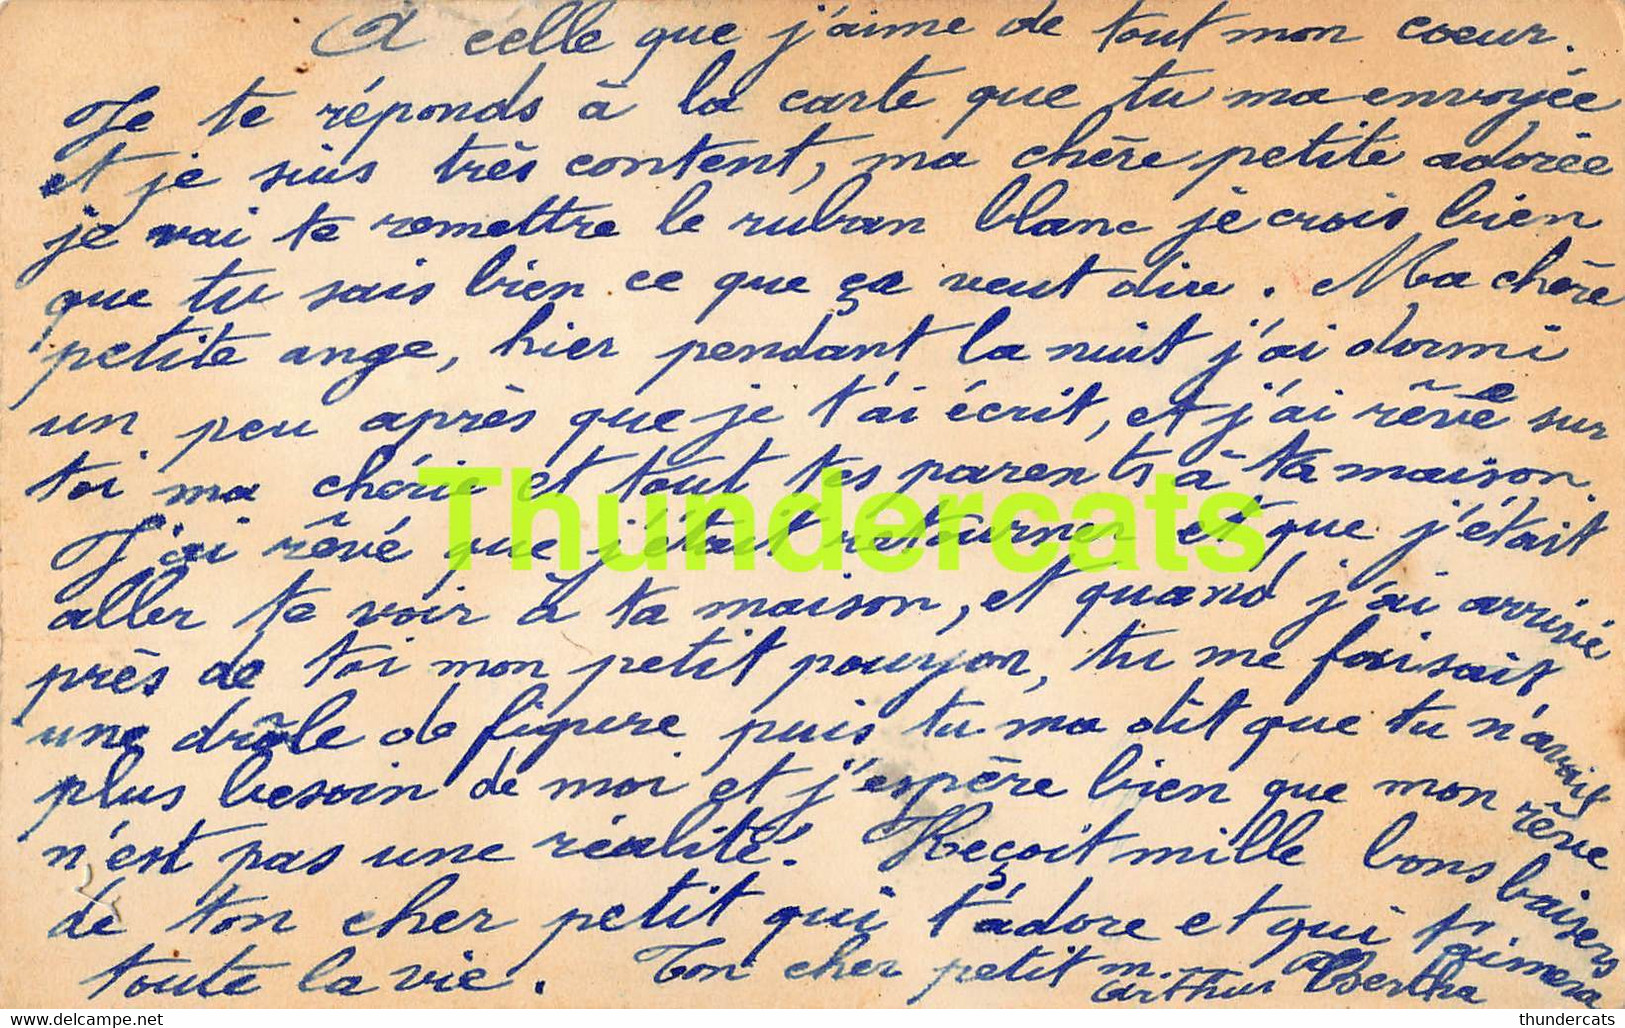 A celle que j'aime de tout mon coeur.
Je te réponds à la carte que tu ma envoyée
et je suis très content, ma chère petite adorée
je vai te remettre le ruban blanc je crois bien
que tu sais bien ce que ça veut dire. Ma chère
petite ange, hier pendant la nuit j'ai dormi
un peu après que je t'ai écrit, et j'ai rêvé sur
toi ma chérie et tout tes parents à ta maison.
J'ai rêvé que j'était retourner et que j'était
aller te voir à ta maison, et quand j'ai arrivé
près de toi mon petit poujon, tu me faisait
une drôle de figure puis tu ma dit que tu n'avait
plus besoin de moi et j'espère bien que mon rêve
n'est pas une réalité. Reçoit mille bons baisers
de ton cher petit qui t'adore et qui t'aimera
toute la vie. Ton cher petit m. Arthur de Bertha
Thundercats
Thundercats.com
thundercats